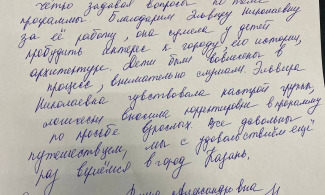 чётко задавал вопросы по теме
программы. Благодарим Эльвиру Николаевну
за её работу, она сумела у детей
пробудить интерес к городу, его истории,
архитектуре. Дети были вовлечены в
процесс, внимательно слушали. Эльвира
Николаевна чувствовала настрой группы,
логически вносила корректировки в программу
по просьбе взрослых. Все довольны
путешествием, мы с удовольствием ещё
раз вернёмся в город Казань.
Александровна